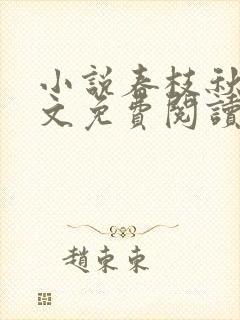 小說春枝秋
文免費閱讀
趙東東